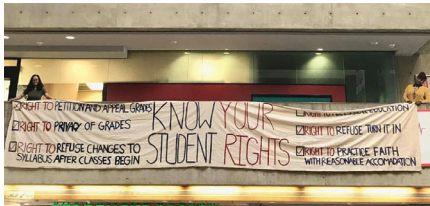 RIGHT TO PETITION AND APPEAL GRADES
RIGHT TO PRIVACY OF GRADES
RIGHT TO REFUSE CHANGES TO
SYLLABUS AFTER CLASSES BEGIN
KNOW YOUR
STUDENT RIGHTS
RIGHT TO EDUCATION
RIGHT TO REFUSE TURN IT IN
RIGHT TO PRACTICE FAITH
WITH REASONABLE ACCOMADATION